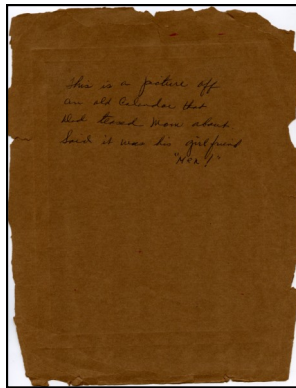 This is a picture off
an old Calendar that
Dad teased Mom about
Said it was his girlfriend
"Hee!"